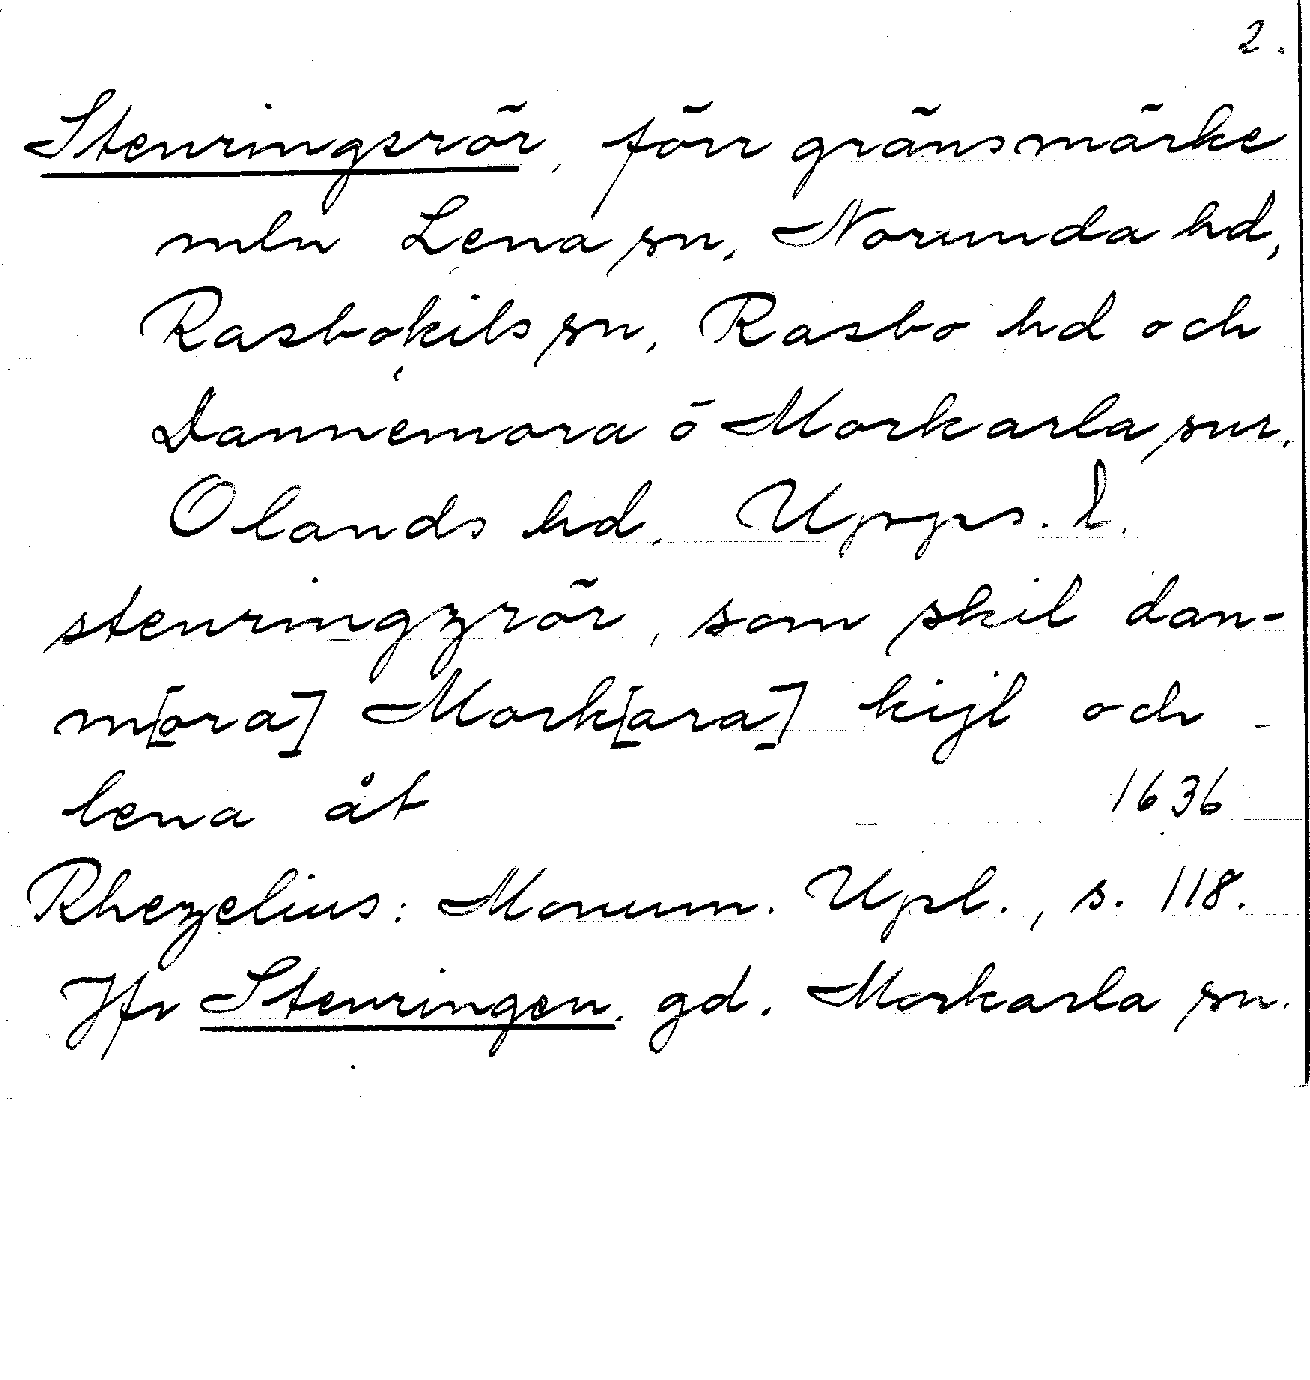 2.
Stenringsrör, förr gränsmärke
mln Lena sn, Norunda hd,
Rasbokils sn, Rasbo hd och
Dannemora o Morkarla snr.
Olands hd. Upps. l.
stenringzrör, som skil dan-
m[ora] Mork[ara] kijl och
lena åt 1636
Rhezelius: Monum. Upl., s. 118.
Jfr Stenringen. gd. Morkarla sn.